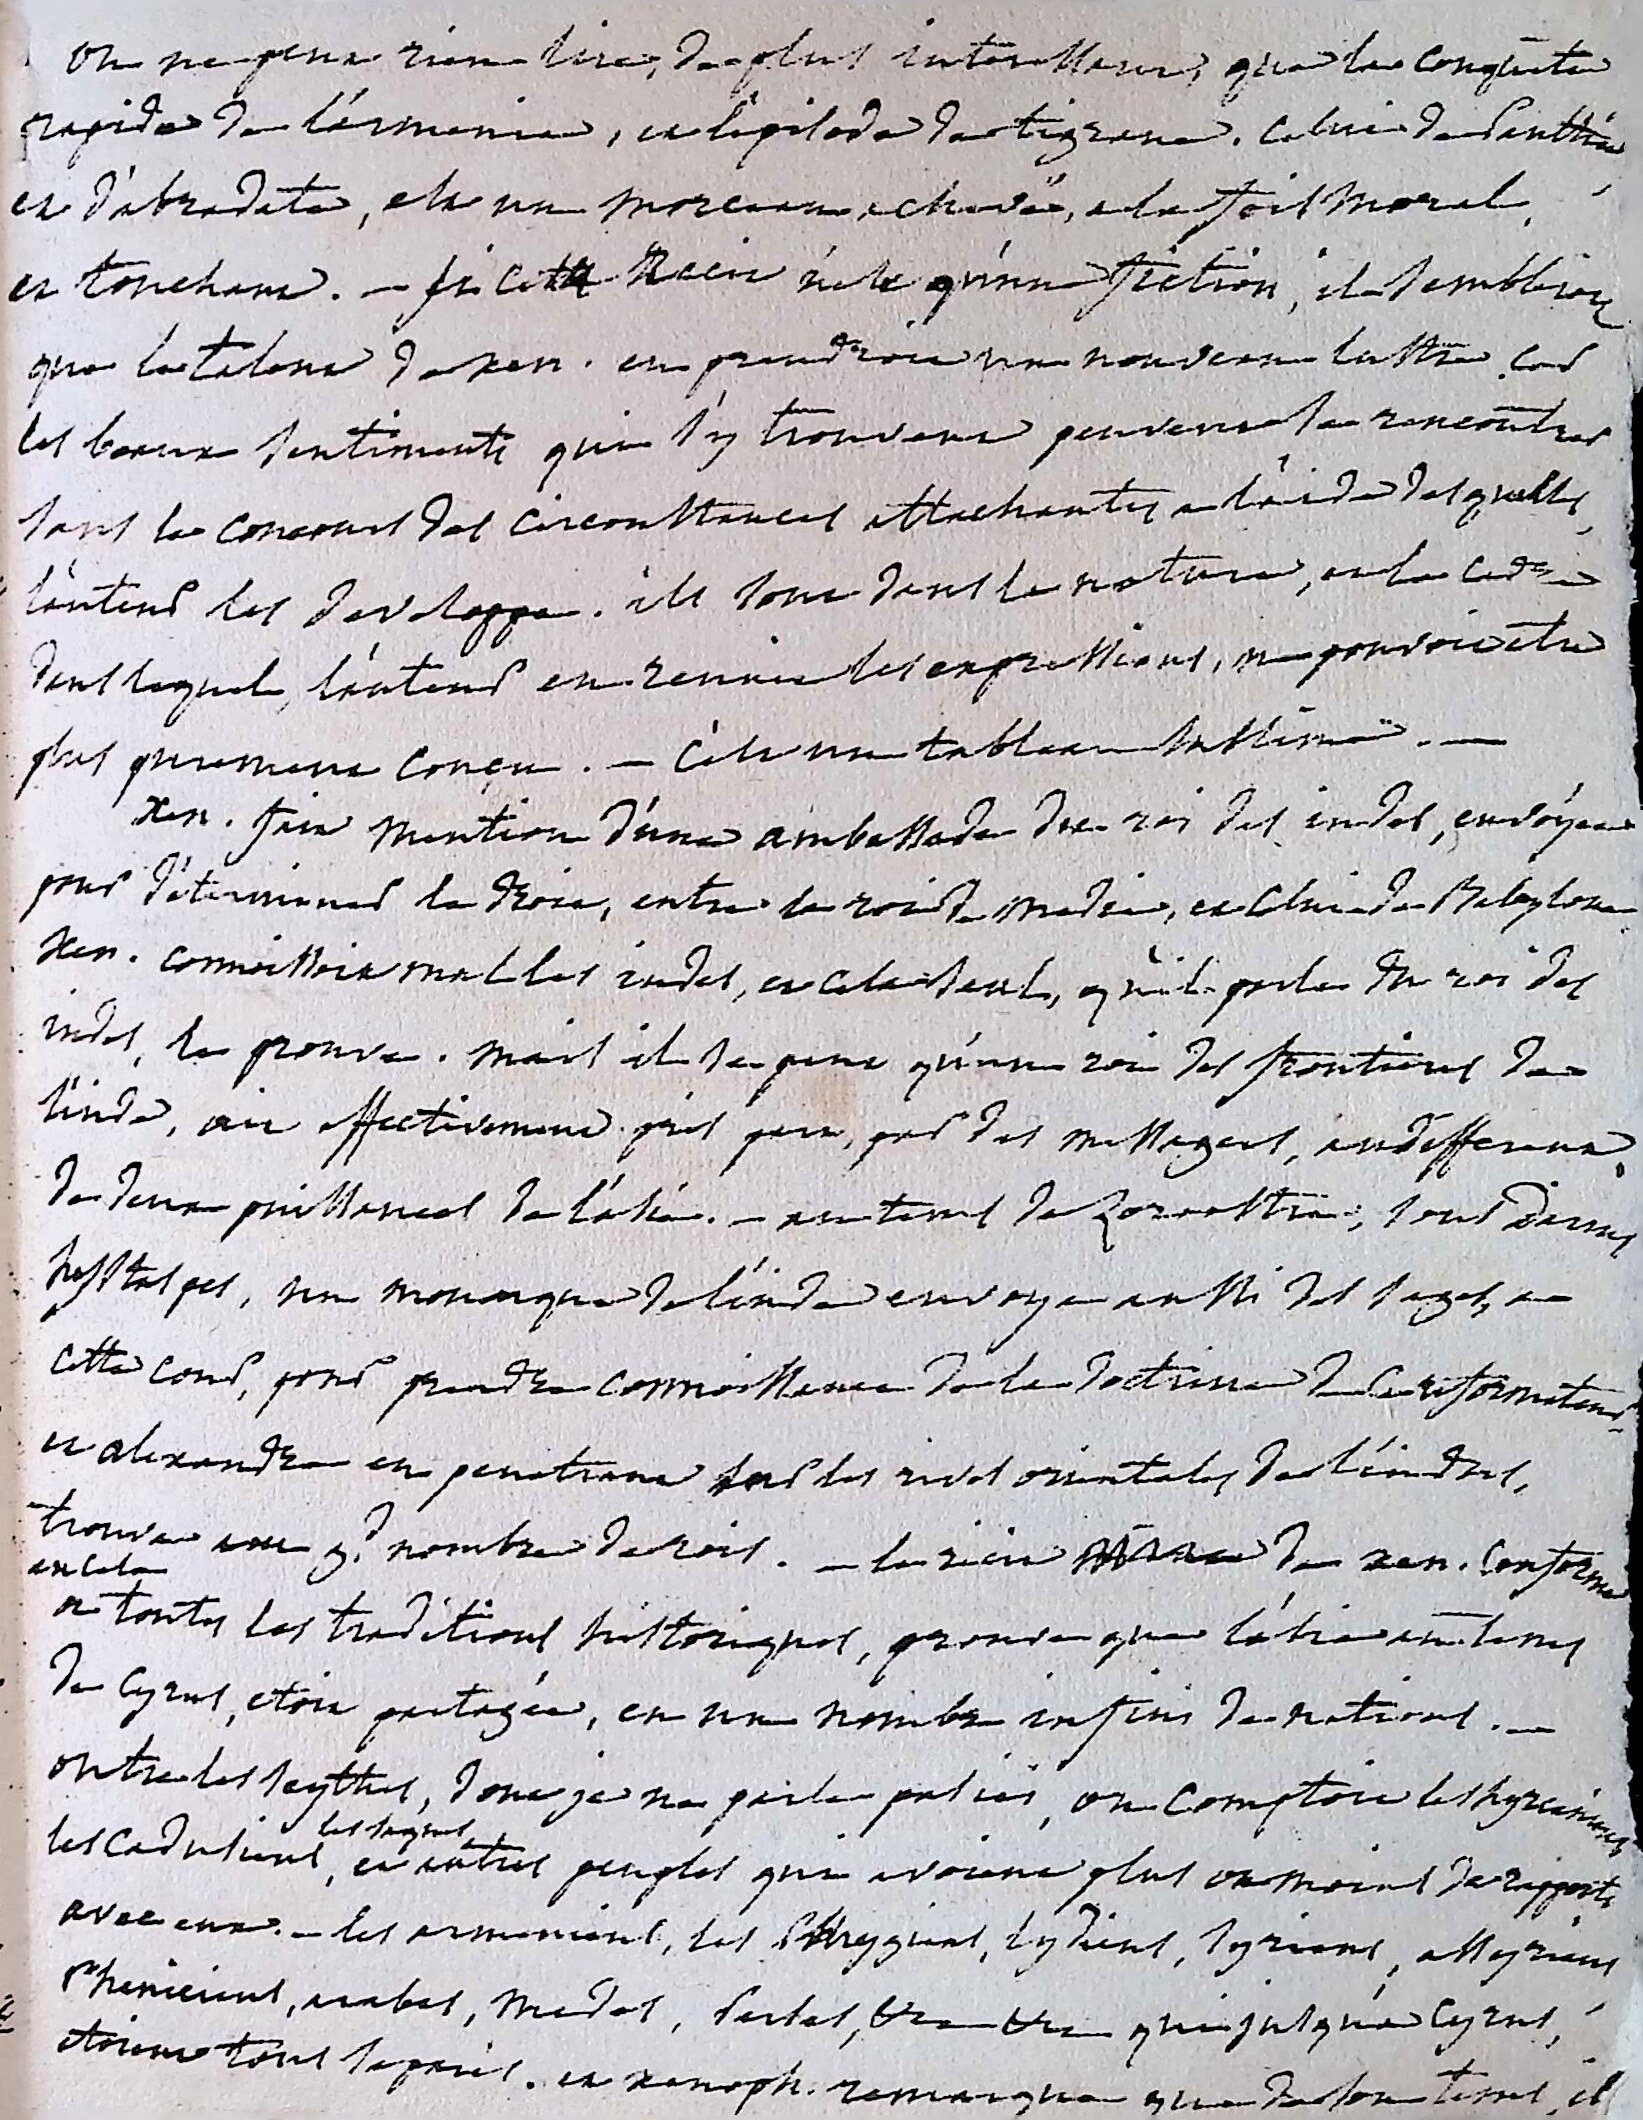 on ne peut rien lire, de plus interessant, que la conquete
rapide de l'armenie, et l'episode de tigrane. celui de Panthée
et d'abradate, est un morceau achevé, a la fois moral,
et touchant. – si cette recit n'est qu'une fiction, il semble
que le talent de xen. en prendroit un nouveau lustre. car
les beaux sentiments qui s'y trouvent peuvent se rencontrer
sans le concours des circonstances attachantes a l'aide desquelles,
l'auteur les developpe. ils sont dans la nature, et le cadre
dans lequel, l'auteur en reunit les expressions, ne pouvoit etre
plus purement conçu. – c'est un tableau sublime. –
xen. fait mention d'une ambassade du roi des indes, envoyée
pour determiner le droit, entre le roi de medie, et celui de Babylone
xen. connoissoit mal les indes, et cela seul, qu'il parle du roi des
indes, le prouve. mais il se peut qu'un roi des frontieres de
l'inde, ait effectivement pris part, par des messagers, au different
de deux puissances de l'asie. – au tems de Zoroastre, sous Darius
hystaspes, un monarque de l'inde envoya aussi des sages, a
cette cour, pour prendre connoissance de la doctrine de ce reformateur
et alexandre en penetrant sur les rives orientales de l'indus,
trouva un gd nombre de rois. – le récit de xen. conforme
en cela
a toutes les traditions historiques, prouve que l'asie au tems
de Cyrus, etoit partagée, en un nombre infini de nations. –
outre les scythes, dont je ne parle pas ici, on comptoit les hyrcaniens
les saques
les Cadusiens, et autres peuples qui avoient plus ou moins de rapports
avec eux. – les armeniens, les Phrygiens, lydiens, syriens, assyriens
Pheniciens, arabes, medes, Perses, &c &c qui jusqu'a Cyrus,
etoient tous separés. et xenoph. remarque que de son tems, il